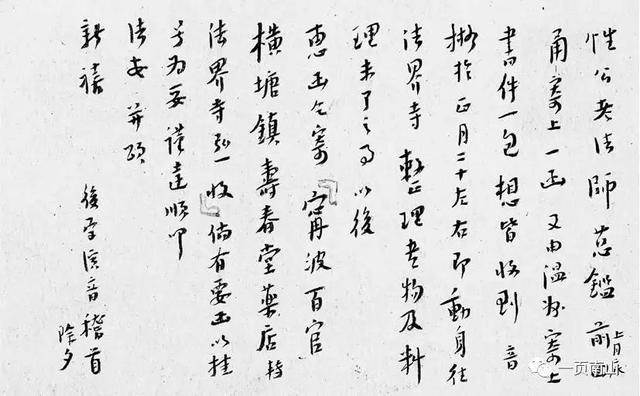 性公老法師慈鑑前由
上月
甬寄上一函又由溫州寄上
書件一包想皆收到音
擬於正月二十左右即動身往
法界寺整理書物及料
理未了之事以後
惠函乞寄寧波百官
橫塘鎮壽春堂藥店轉
法界寺弘一收倘有要函以挂
号為妥謹達順叩
法安并頌
新禧
後學演音稽首
除夕
一页南山